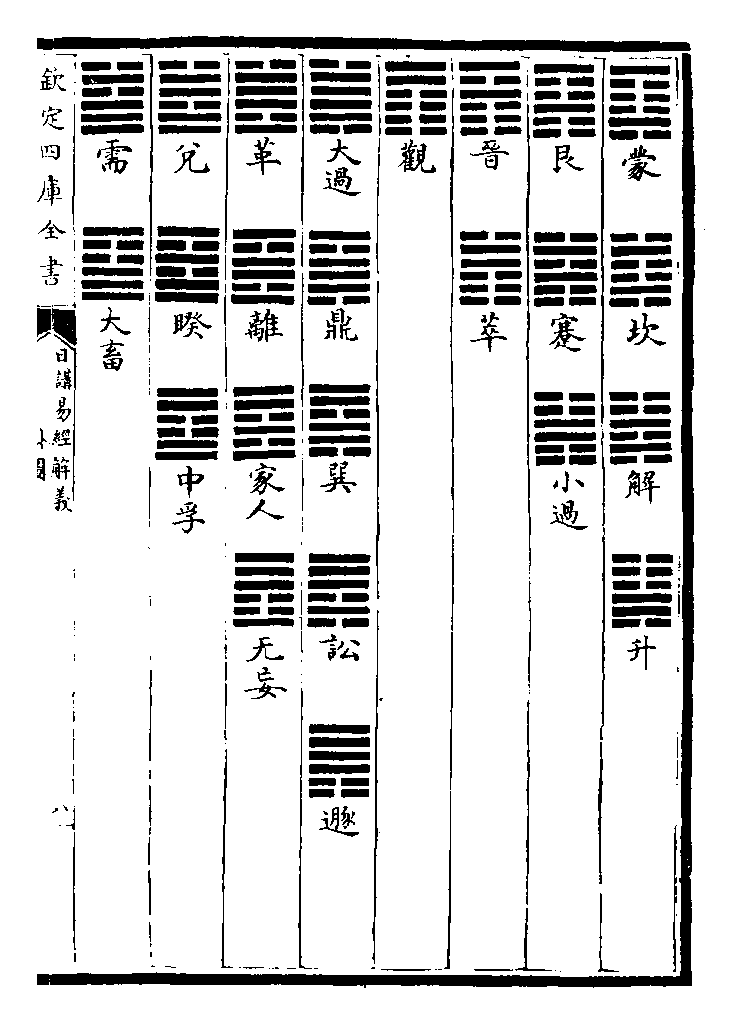 蒙 坎 解 升
艮 蹇 小過
晉 萃
觀
大過 鼎 巽 訟 遯
革 離 家人 无妄
兌 睽 中孚
需 大畜
欽定四庫全書
日講易經解義
卦圖
八